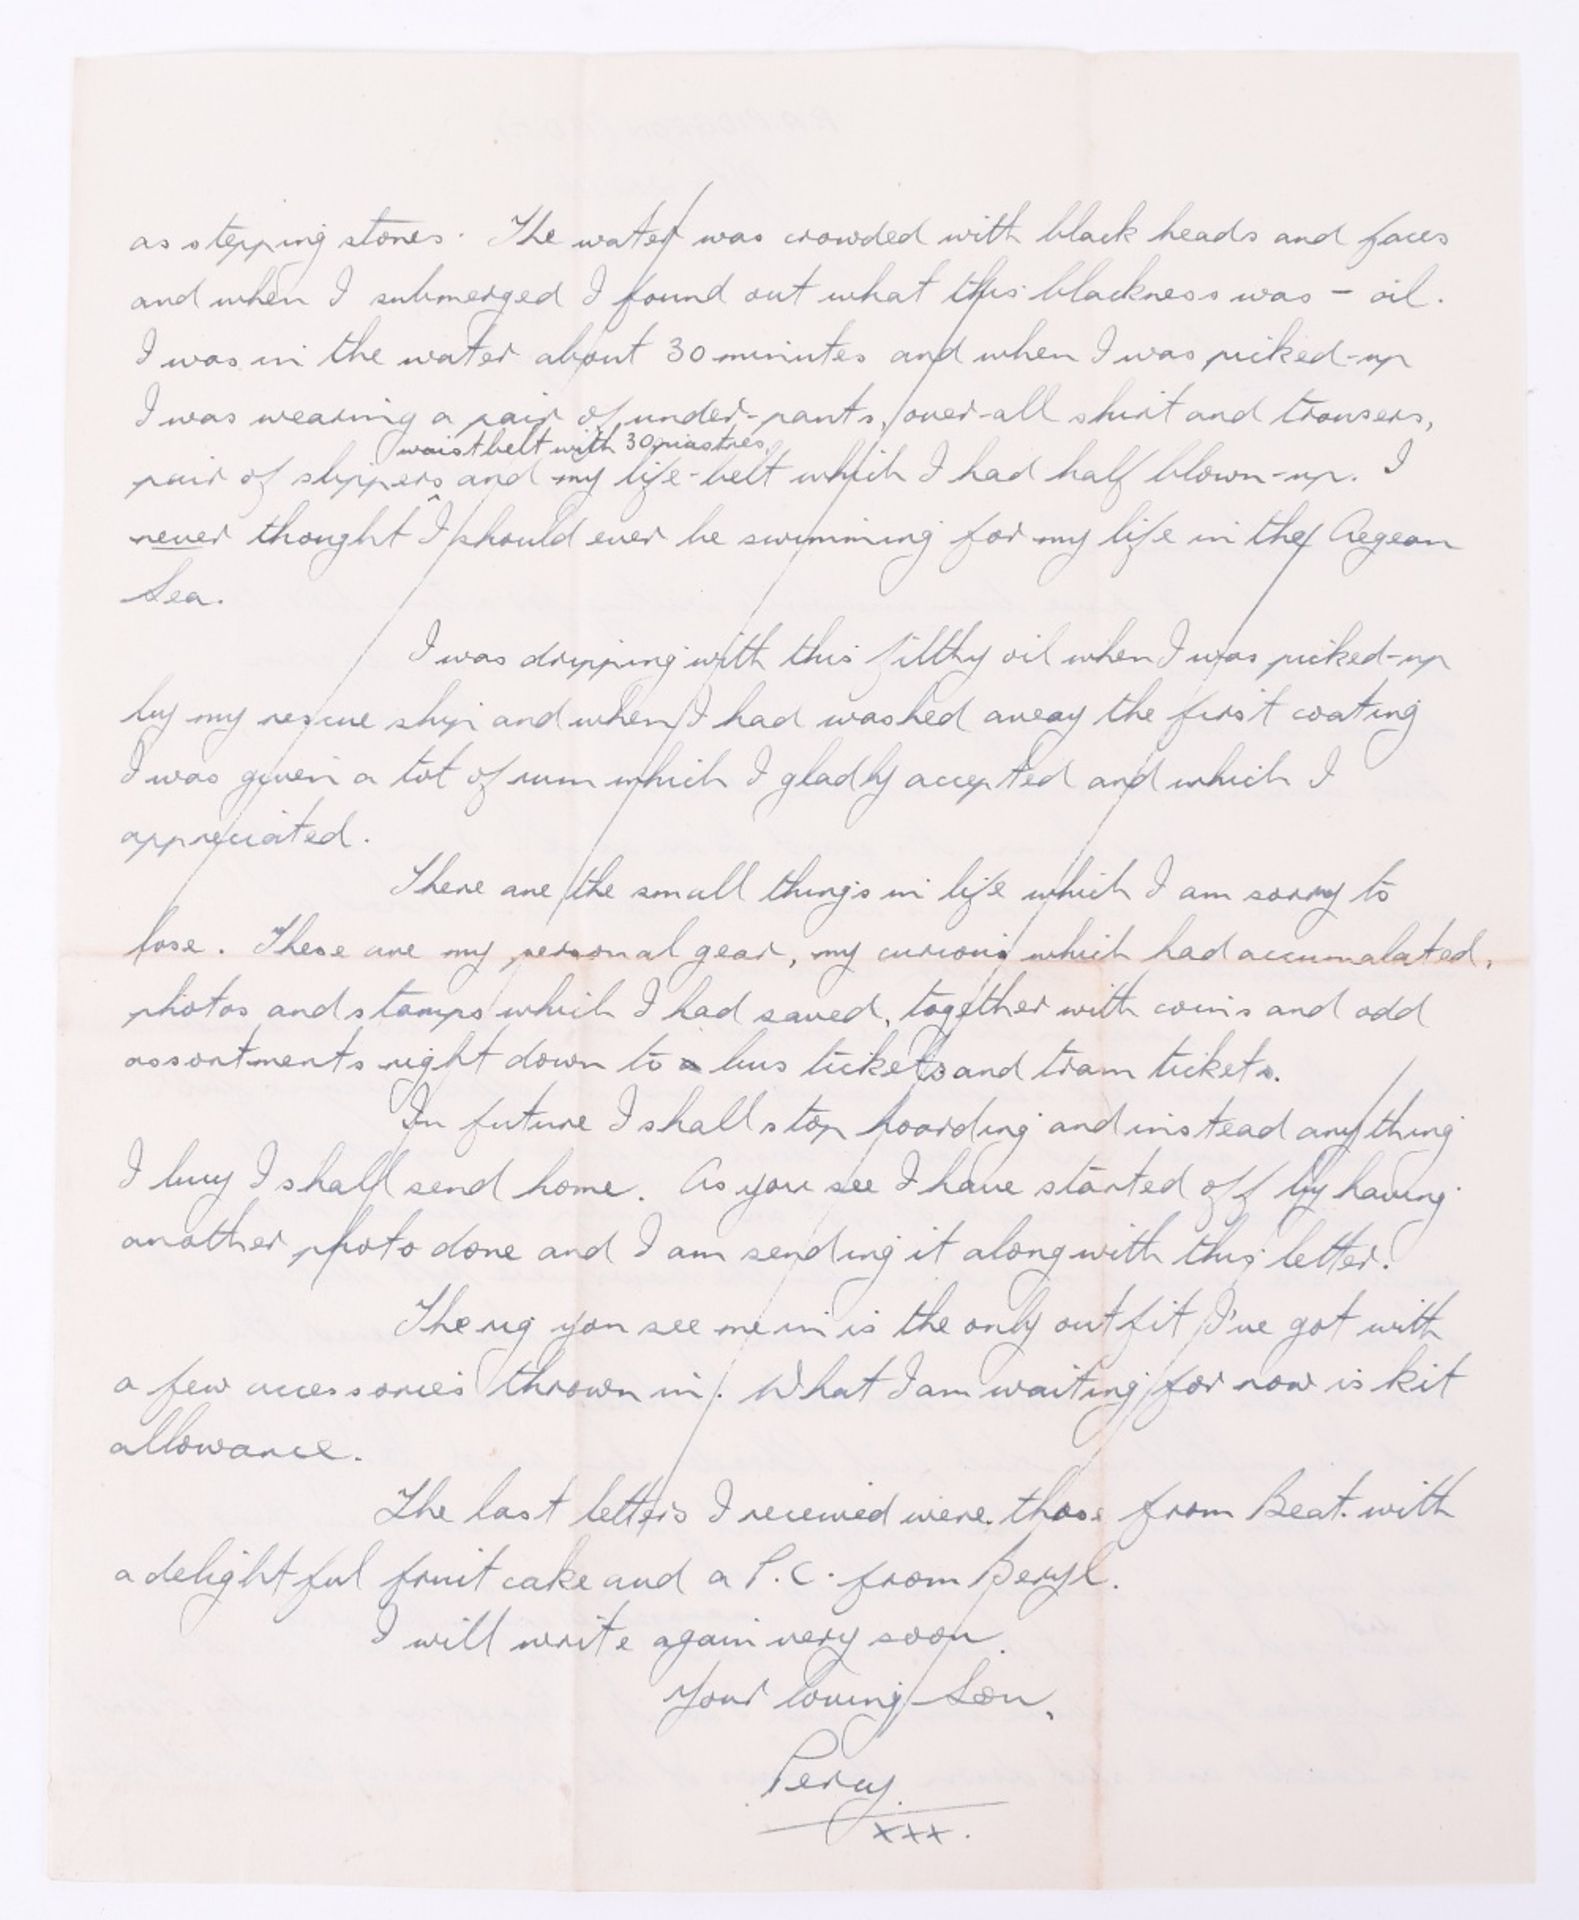 as stepping stones. The water was crowded with black heads and faces
and when I submerged I found out what this blackness was – oil.
I was in the water about 30 minutes and when I was picked-up
I was wearing a pair of under-pants, over-all shirt and trousers,
waistbelt with 30 piastres,
pair of slippers and my life-belt which I had half blown-up. I
never thought I should ever be swimming for my life in the Aegean
Sea.
I was dripping with this filthy oil when I was picked-up
by my rescue ship and when I had washed away the first coating
I was given a tot of rum which I gladly accepted and which I
appreciated.
There are the small things in life which I am sorry to
lose. These are my personal gear, my curious which had accumalated,
photos and stamps which I had saved, together with coins and odd
assortments right down to bus tickets and tram tickets.
In future I shall stop hoarding and instead anything
I buy I shall send home. As you see I have started off by having
another photo done and I am sending it along with this letter.
The rig you see me in is the only outfit I've got with
a few accessories thrown in. What I am waiting for now is kit
allowance.
The last letters I received were those from Beat. with
a delightful fruit cake and a P.C. from Beryl.
I will write again very soon.
Your loving Son,
Percy.
xxx.